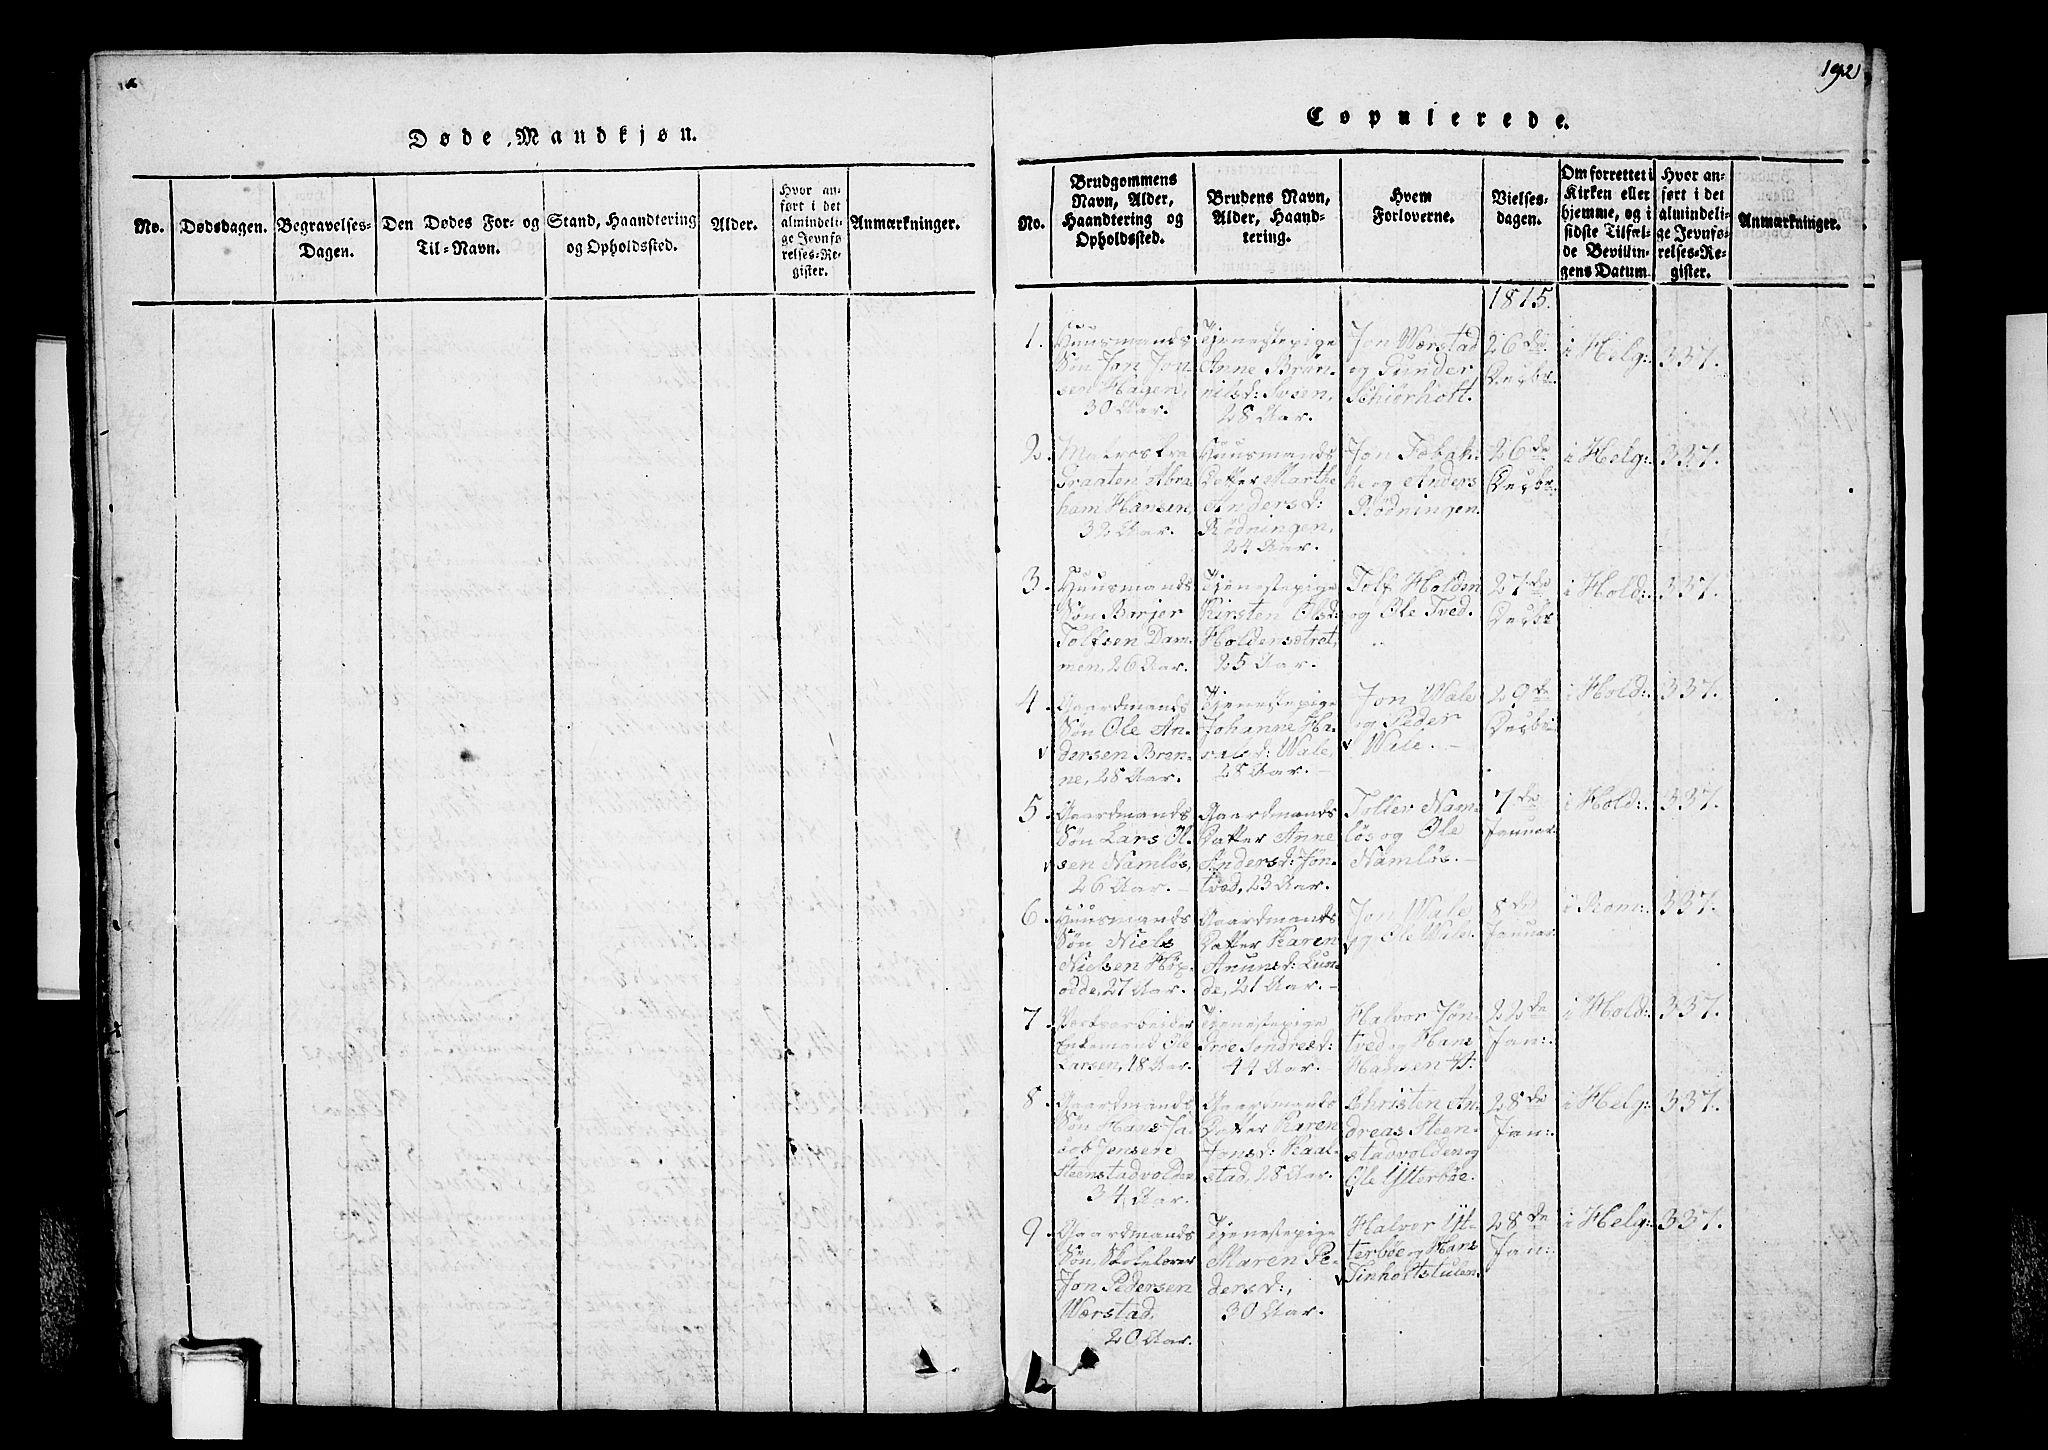 Døde Mandkjøn.
No.
Dødsdagen.
Begravelses-
Dagen.
Den Dødes For- og
Til-Navn.
Stand, Haandtering
og Opholdssted.
Alder.
Hvor an-
ført i det
almindeli-
ge Jevnfø
relses-Re-
gister.
Anmærkninger.
192
Copulerede.
No.
Brudgommens
Navn, Alder,
Haandtering og
Opholdssted.
Brudens Navn,
Alder, Haand-
tering.
Hvem
Forloverne.
Vielses-
dagen.
Om forrettet i
Kirken eller
hjemme, og i
sidste Tilfæl-
de Bevillin-
gens Datum
Hvor an-
ført i det
almindeli-
ge Jevnfø-
relses-Re-
gister.
Anmærkninger.
1815.
1.
Huusmands
Søn Jon Jon-
sen Hagen,
30 Aar.
Tjenestepige
Anne Brøn-
nilsd:
28 Aar.
Jon Værstad
og Gunder
Schierholt.
26de
Decbr.
i Helg:
337.
2.
Matros fra
Graaten Abra-
ham Hansen,
32 Aar.
Huusmands
Datter Marthe
Andersd:
Rødningen,
24 Aar.
Jon
og Anders
Rødningen.
26de
Decbr.
i Helg:
337.
3.
Huusmands
Søn Børjer
Tolfsen Dam-
men, 26 Aar.
Tjenestepige
Kirsten Olsd:
Holdersætret,
25 Aar.
Tolf Holden
og Ole Tved.
27de
Decbr
i Hold:
337.
4.
Gaardmands
Søn Ole An-
dersen Bren-
ne, 28 Aar.
Tjenestepige
Johanne Ha-
ralsd: Wale,
28 Aar.
Jon Wale
og Peder
Wale.
29de
Decbr
i Hold:
337.
5.
Gaardmands
Søn Lars Ol-
sen Namløs,
26 Aar.
Gaardmands
Datter Anne
Andersd: Jøn-
tved, 23 Aar.
Toller Nam-
løs og Ole
Namløs.
7de
Januar
i Hold:
337.
6.
Huusmands
Søn Niels
Nielsen
odde, 27 Aar.
Gaardmands
Datter Karen
Anunsd: Lun-
de, 21 Aar.
Jon Wale
og Ole Wale.
8de
Januar.
i Rom:
337.
7.
Værksarbeider
Enkemand Ole
Larsen, 48 Aar.
Tjenestepige
Groe Sondresd:
44 Aar.
Halvor Jøn-
tved og Hans
Hansen
22de
Jan:
i Hold:
337.
8.
Gaardmands
Søn Hans Ja-
cob Jensen
Steenstadvolden
34 Aar.
Gaardmands
Datter Karen
Jonsd: Kaal-
stad, 28 Aar.
Christen An-
dreas Steen-
stadvolden og
Ole Ytterbøe.
28de
Jan:
i Helg:
337.
9.
Gaardmands
Søn, Skolelærer
Jon Pedersen
Værstad,
20 Aar.
Tjenestepige
Maren Pe-
dersd:,
30 Aar.
Halvor Yt-
terbøe og Hans
Tinholtstulen.
28de
Jan:
i Helg:
337.